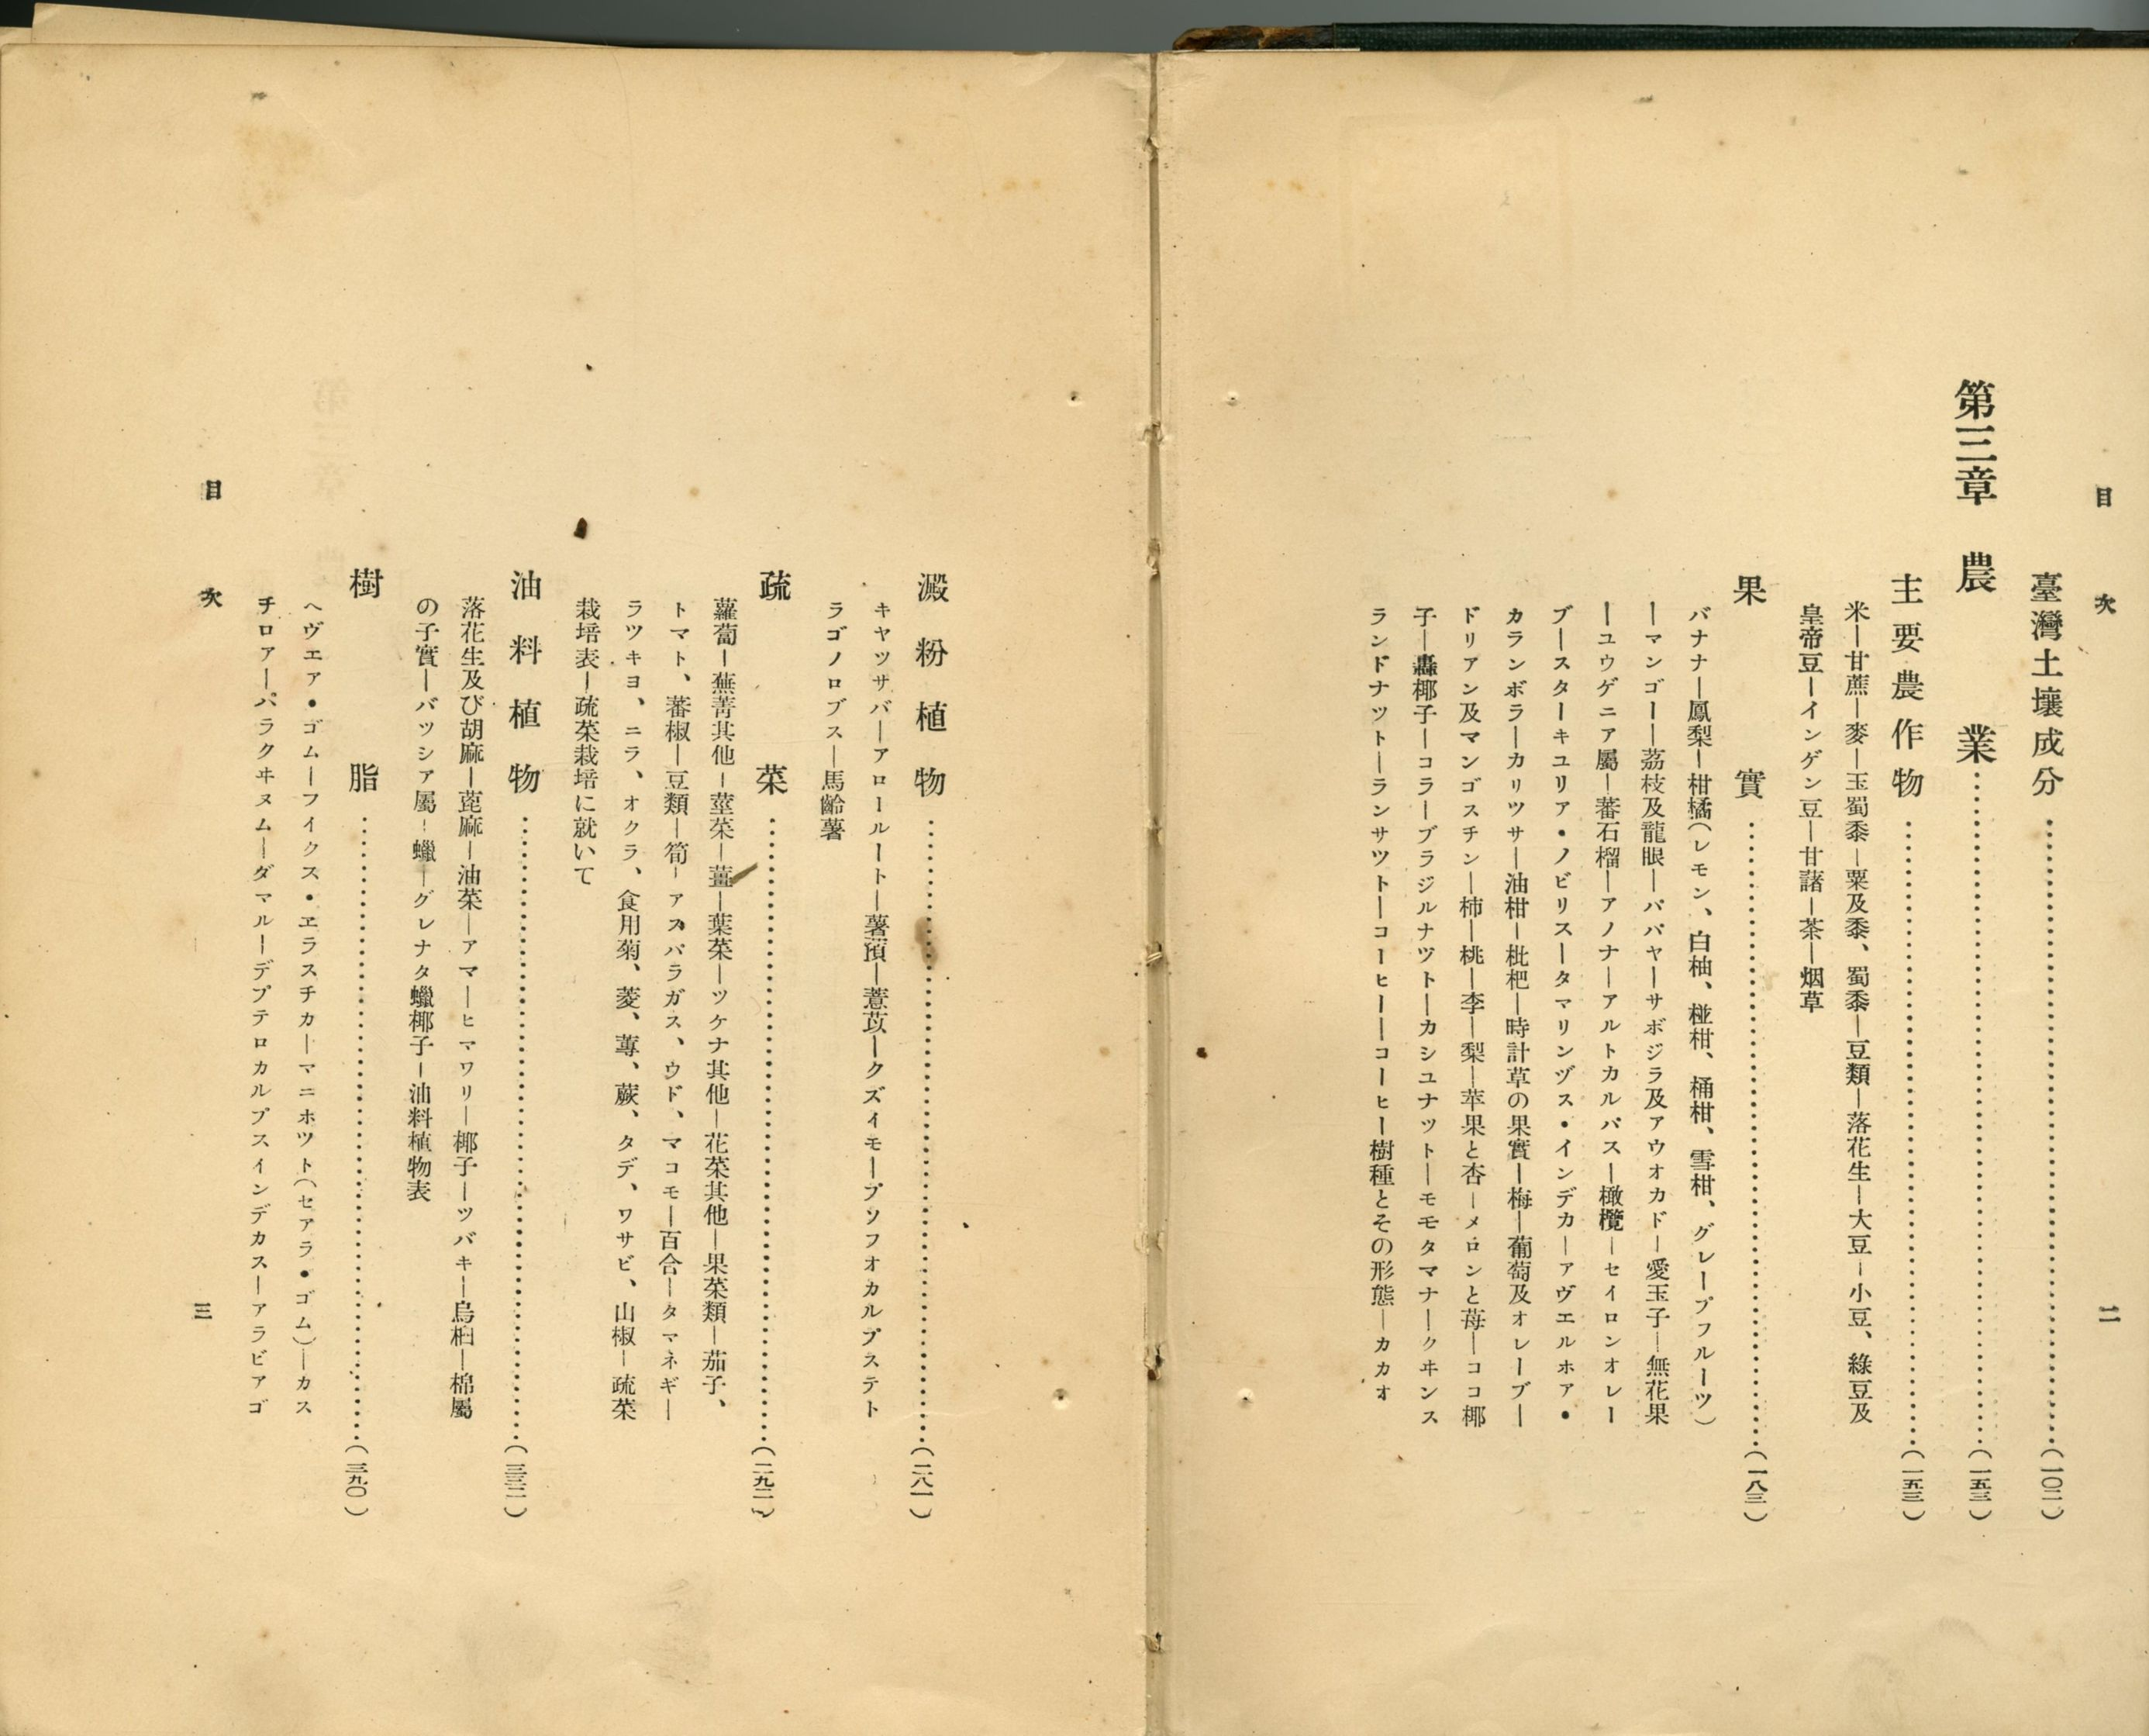 目次
二
臺灣土壤成分……(一〇二)
第三章 農業……(一五三)
主要農作物……(一五三)
米―甘蔗―麥―玉蜀黍―粟及黍、蜀黍―豆類―落花生―大豆―小豆、綠豆及
皇帝豆―インゲン豆―甘藷―茶―烟草
果實……(一八三)
バナナ―鳳梨―柑橘(レモン、白柚、椪柑、桶柑、雪柑、グレープフルーツ)
―マンゴー―荔枝及龍眼―パパヤ―サボジラ及アウオカド―愛玉子―無花果
―ユウゲニア屬―蕃石榴―アノナ―アルトカルパス―橄欖―セイロンオレー
ブ―スターキユリア・ノビリス―タマリンヅス・インデカ―アヴエルホア・
カランボラ―カリツサ―油柑―枇杷―時計草の果實―梅―葡萄及オレーブ―
ドリアン及マンゴスチン―柿―桃―李―梨―苹果と杏―メロンと苺―ココ椰
子―轟椰子―コラーブラジルナツト―カシユナット―モモタマナ―クヰンス
ランドナット―ランサツト―コーヒー―コーヒー樹種とその形態―カカオ
澱粉植物……(二八一)
キヤツサバ―アロールート―薯蕷―薏苡―クズイモ―プソフオカルプステト
ラゴノロブス―馬齡薯
疏菜……(二九二)
蘿蔔―蕪菁其他―莖菜―薑―葉菜―ツケナ其他―花菜其他―果菜類―茄子、
トマト、蕃椒―豆類―筍―アスパラガス、ウド、マコモ―百合―タマネギ―
ラツキヨ、ニラ、オクラ、食用菊、菱、蓴、蕨、タデ、ワサビ、山椒―疏菜
栽培表―疏菜栽培に就いて
油料植物……(三三二)
落花生及び胡麻―蓖麻―油菜―アマ―ヒマワリ―椰子―ツバキ―烏桕―棉屬
の子實―バツシア屬―蠟―グレナタ蠟椰子―油料植物表
樹脂……(三九〇)
ヘヴエア・ゴム―フイクス・ヱラスチカ―マニホツト(セアラ・ゴム)―カス
チロア―パラクヰヌム―ダマル―デプテロカルプスインデカス―アラビアゴ
目次
三